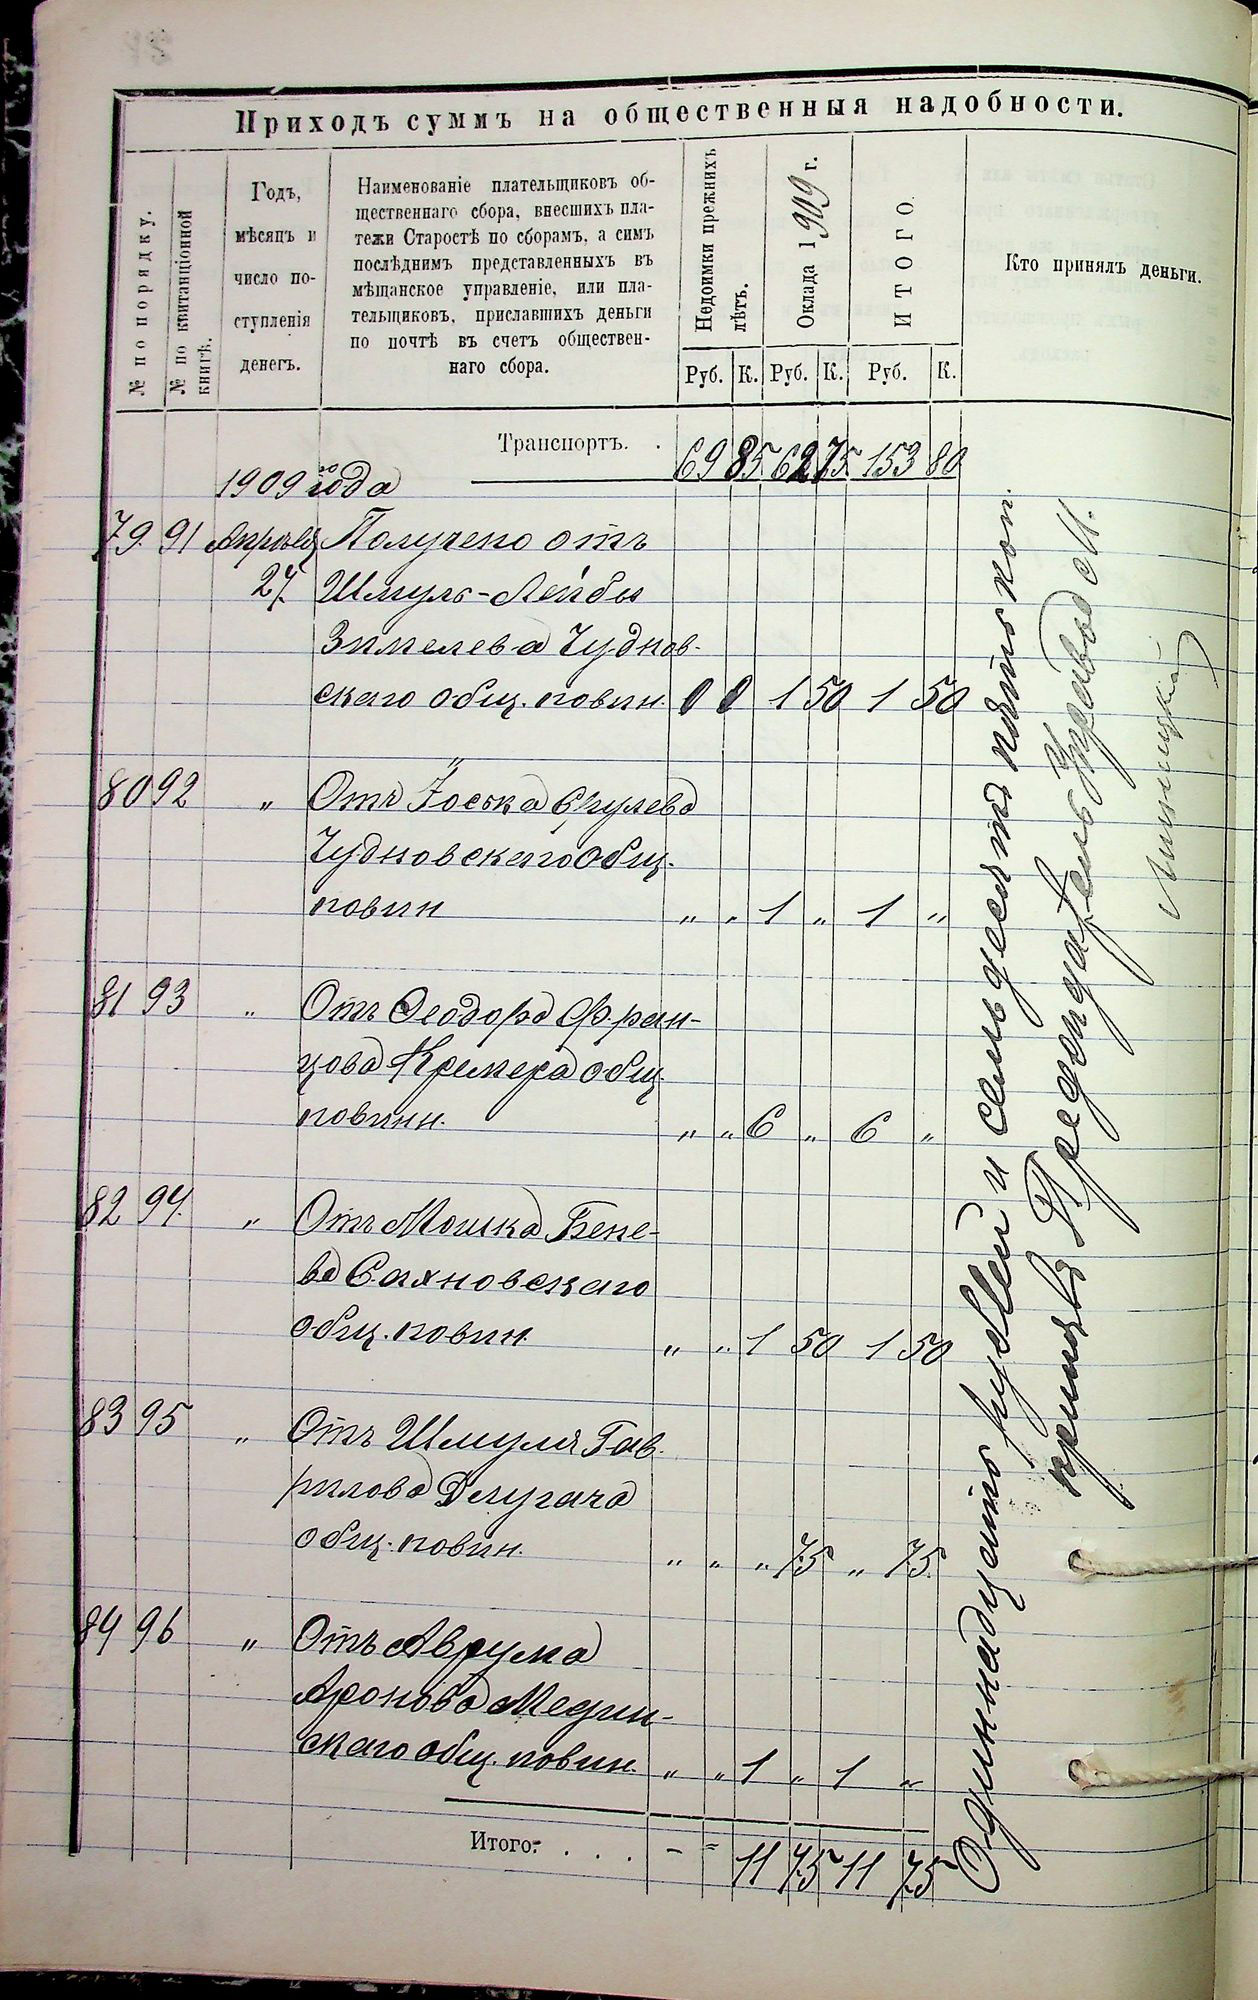 Приходъ суммъ на общественныя надобности.
№ по порядку.
№ по квитанціонной
книгѣ.
Годъ,
мѣсяцъ и
число по-
ступленія
денегъ.
Наименованіе плательщиковъ об-
щественнаго сбора, внесшихъ пла-
тежи Старостѣ по сборамъ, а симъ
послѣднимъ представленныхъ въ
мѣщанское управленіе, или пла-
тельщиковъ, приславшихъ деньги
по почтѣ въ счетъ обществен-
наго сбора.
Недоимки прежнихъ
лѣтъ.
Оклада 1909 г.
ИТОГО.
Кто принялъ деньги.
Руб. К. Руб. К. Руб. К.
Транспортъ. . 69 85 62 75 153 80
1909 года
79 91 Апрѣля Получено отъ
27 Шмуль-Лейбы
Зимелева Чуднов-
скаго общ. повин. 0 0 1 50 1 50
80 92 „ Отъ Іоська Срулева
Чудновскаго общ.
повин „ „ 1 „ 1 „
81 93 „ Отъ Ѳеодора Фран-
цова Кремера общ.
повинн. „ „ 6 „ 6 „
82 94 „ Отъ Мошка Бене-
ва Сахновскаго
общ. повин. „ „ 1 50 1 50
83 95 „ Отъ Шмуля Гав-
рилова Длугача
общ. повин. „ „ „ 75 „ 75
84 96 „ Отъ Аврума
Аронова Медин-
скаго общ. повин. „ „ 1 „ 1 „
Итого: . . . – = 11 75 11 75
Одиннадцать рублей и семьдесятъ пять коп.
принялъ Предсѣдатель Управы М.